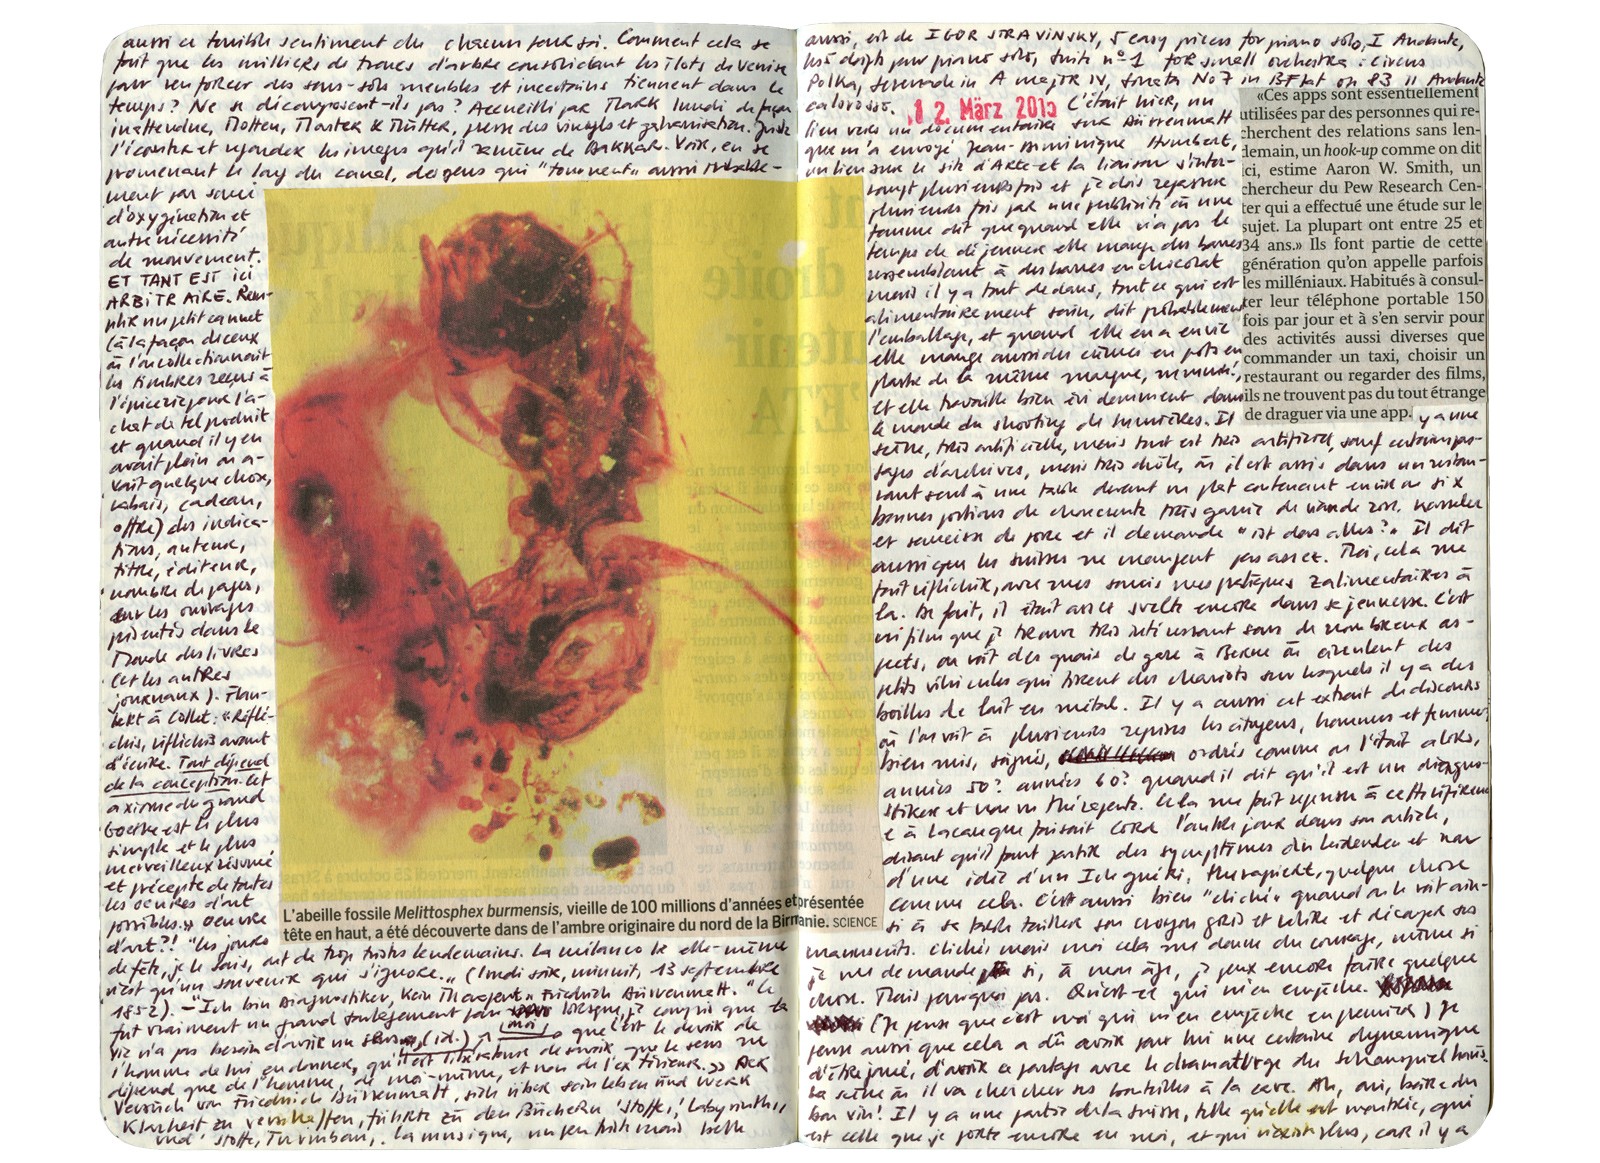 aussi ce terrible sentiment du chacun pour soi. Comment cela se
fait que les milliers de troncs d'arbre consolidant les îlots de Venise
pour renforcer des sous-sols meubles et incertains tiennent dans le
temps? Ne se décomposent-ils pas? Accueilli par Mark lundi de façon
inattendue, Motten, Master & Mütter, presse des vinyls et galvanisation. Juste
l'écouter et regarder les images qu'il ramène de DAKKAR. Voir, en se
promenant le long du canal, des gens qui "tournent" aussi
ment par souci
d'oxygénation et
autre nécessité
de mouvement.
ET TANT EST ici
ARBITRAIRE. Rem-
plir un petit carnet
(à la façon de ceux
où l'on collectionnait
les timbres reçus à
l'épicerie pour l'a-
chat de tel produit
et quand il y en
avait plein on a-
vait quelque chose,
rabais, cadeau,
offre) des indica-
tions, auteur,
titre, éditeur,
nombre de pages,
sur les ouvrages
présentés dans le
Monde des livres
(et les autres
journaux). Flau-
bert à Collet: «Réflé-
chis, réfléchis avant
d'écrire. Tout dépend
de la conception. Cet
axiome du grand
Goethe est le plus
simple et le plus
merveilleux résumé
et précepte de toutes
les œuvres d'art
possibles.» Oeuvre
d'art?! "Les jours
de fête, je le sais, ont de trop tristes lendemains. La mélancolie elle-même
n'est qu'un souvenir qui s'ignore." (lundi soir, minuit, 13 septembre
1852). - "Ich bin Diagnostiker, kein Therapeut" Friedrich Dürrenmatt. "Ce
fut vraiment un grand soulagement pour moi lorsque j'ai compris que la
vie n'a pas besoin d'avoir un sens, (id.) que c'est le devoir de
l'homme de lui en donner, qu'il est libre de savoir que le sens ne
dépend que de l'homme, de moi-même, et non de l'extérieur.» Der
Versuch von Friedrich Dürrenmatt, sich über sein Leben und Werk
Klarheit zu verschaffen, führte zu den Büchern 'Stoffe', 'Labyrinth'
und 'Stoffe, Turmbau'. La musique, un peu triste mais belle
L'abeille fossile Melittosphex burmensis, vieille de 100 millions d'années et présentée
tête en haut, a été découverte dans de l'ambre originaire du nord de la Birmanie. SCIENCE
aussi, est de IGOR STRAVINSKY, 5 easy pieces for piano solo, I Andante,
les 5 doigts pour piano solo, suite n°1 for small orchestra: Circus
Polka, serenade in A major IV, sonata No 7 in B Flat op 83 II Andante
caloroso. 12. März 2015 C'était hier, un
lien vers un documentaire sur Dürrenmatt
que m'a envoyé Jean-Dominique Humbert,
un lien sur le site d'Arte et la liaison s'inter-
rompt plusieurs fois et je dois repasser
plusieurs fois par une publicité où une
femme dit que quand elle n'a pas le
temps de déjeuner elle mange des barres
ressemblant à des barres en chocolat
mais il y a tout dedans, tout ce qui est
alimentairement sain, dit probablement
l'emballage, et quand elle en a envie
elle mange aussi des crèmes en pots en
plastic de la même marque,
et elle travaille bien évidemment dans
le monde du shooting de Il y a une
scène, très artificielle, mais tout est très artificiel, sauf certains pas-
sages d'archives, mais très drôle, où il est assis dans un restau-
rant seul à une table devant un plat contenant environ six
bonnes portions de choucroute très garnie de viande
et saucisse de porc et il demande "ist das alles?" Il dit
aussi que les suisses ne mangent pas assez. Moi, cela me
fait réfléchir, avec mes soucis mes pratiques alimentaires à
la. De fait, il était assez svelte encore dans sa jeunesse. C'est
un film que je trouve très intéressant sous de nombreux as-
pects, on voit des quais de gare à Berne où circulent des
petits véhicules qui tirent des chariots sur lesquels il y a des
boilles de lait en métal. Il y a aussi cet extrait de discours
où l'on voit à plusieurs reprises les citoyens, hommes et femmes
bien mis, soignés, ordrés comme on l'était alors,
années 50? années 60? quand il dit qu'il est un diagnos-
tiker et non un thérapeute. Cela me fait repenser à cette référence
à Lacan que faisait l'autre jour dans son article,
disant qu'il faut partir des symptômes du leidenden et non
d'une idée d'un Ich guéri, therapiert, quelque chose
comme cela. C'est aussi bien "cliché" quand on le voit ain-
si à sa table tailler son crayon gris et relire et découper ses
manuscrits. Cliché mais moi cela me donne du courage, même si
je me demande si, à mon âge, je peux encore faire quelque
chose. Mais pourquoi pas. Qu'est-ce qui m'en empêche.
(Je pense que c'est moi qui m'en empêche en premier) Je
pense aussi que cela a dû avoir pour lui une certaine dynamique
d'être joué, d'avoir ce partage avec le dramaturge du Schauspielhaus.
La scène où il va chercher ses bouteilles à la cave. Ah, oui, boire du
bon vin! Il y a une partie de la Suisse, telle qu'elle est montrée, qui
est celle que je porte encore en moi, et qui n'existe plus, car il y a
«Ces apps sont essentiellement
utilisées par des personnes qui re-
cherchent des relations sans len-
demain, un hook-up comme on dit
ici, estime Aaron W. Smith, un
chercheur du Pew Research Cen-
ter qui a effectué une étude sur le
sujet. La plupart ont entre 25 et
34 ans.» Ils font partie de cette
génération qu'on appelle parfois
les milléniaux. Habitués à consul-
ter leur téléphone portable 150
fois par jour et à s'en servir pour
des activités aussi diverses que
commander un taxi, choisir un
restaurant ou regarder des films,
ils ne trouvent pas du tout étrange
de draguer via une app.